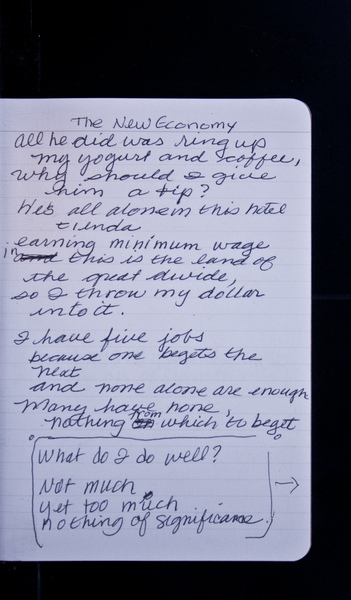 The New Economy
All he did was ring up
my yogurt and coffee,
why should I give
him a tip?
He's all alone in this hotel
tienda
earning minimum wage
in this is the land of
the great divide,
so I throw my dollar
into it.
I have five jobs
because one begets the
next
and none alone are enough
Many have none,
nothing from which to beget
What do I do well?
Not much
yet too much
nothing of significance.